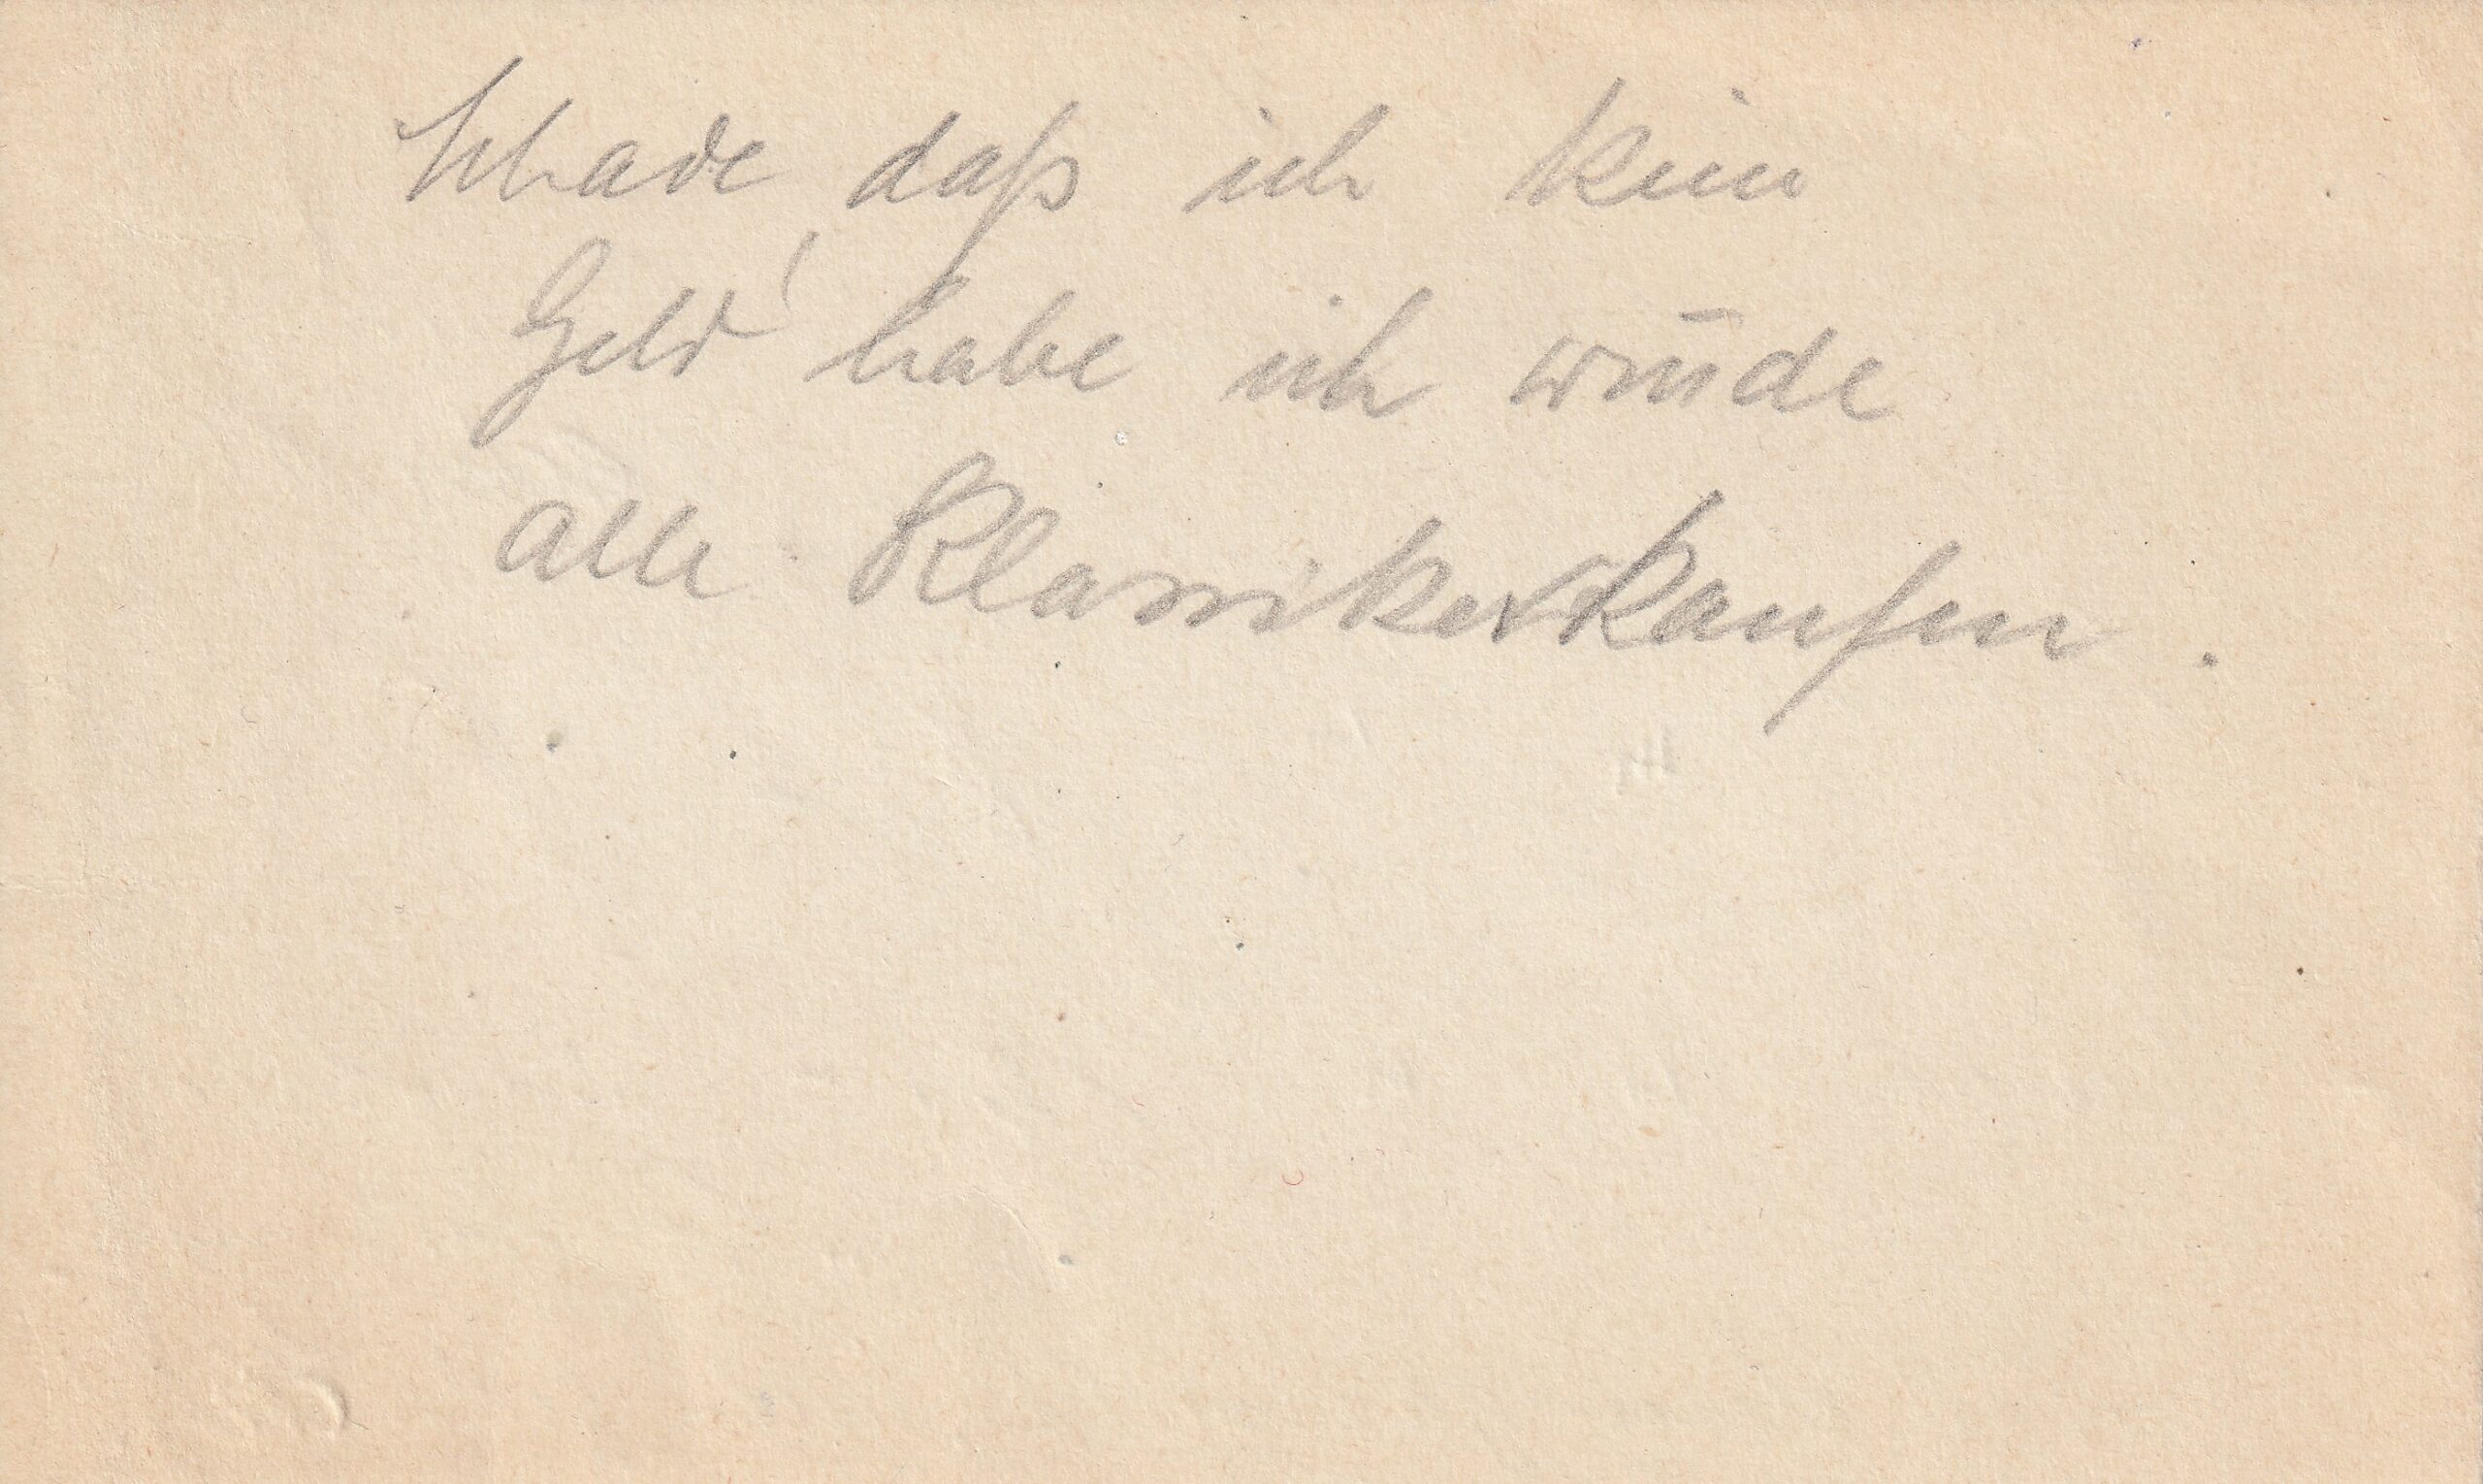 Schade, daß ich kein
Geld habe ich würde
alle Klassiker kaufen.